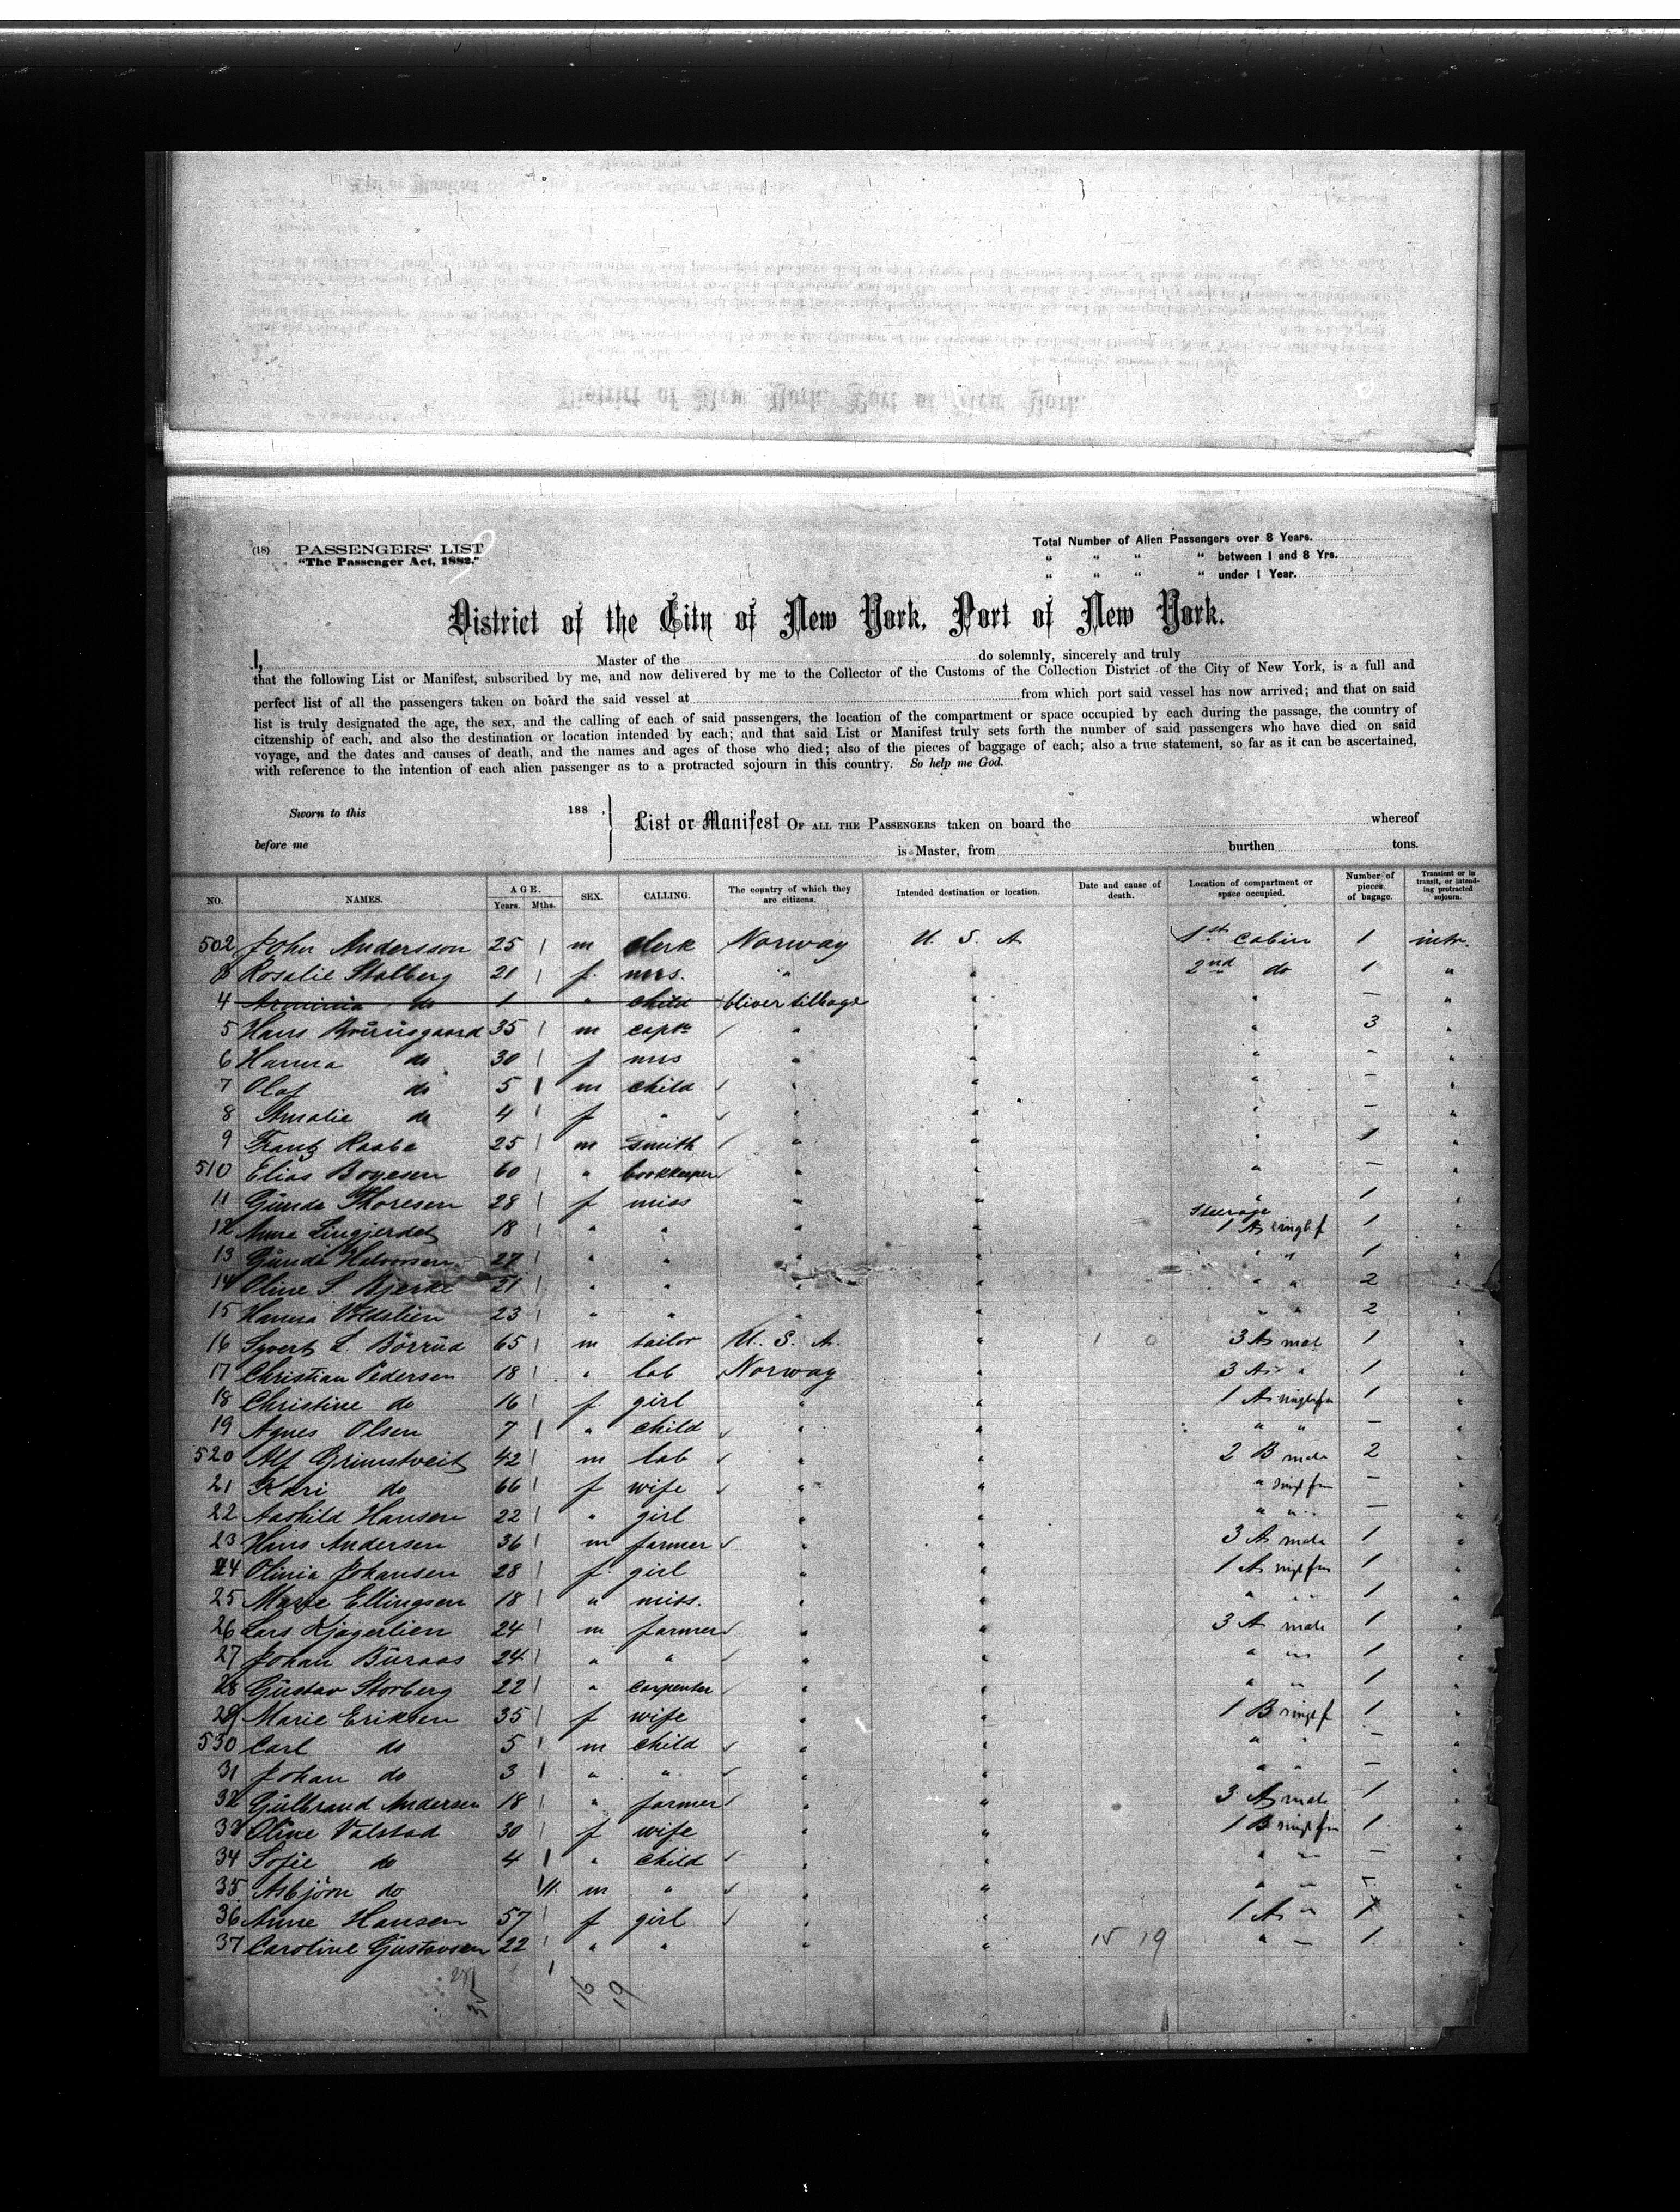 (18) PASSENGERS' LIST
"The Passenger Act, 1882."
Total Number of Alien Passengers over 8 Years.
" " " " between 1 and 8 Yrs.
" " " " under 1 Year.
District of the City of New York, Port of New York.
I, Master of the do solemnly, sincerely and truly
that the following List or Manifest, subscribed by me, and now delivered by me to the Collector of the Customs of the Collection District of the City of New York, is a full and
perfect list of all the passengers taken on board the said vessel at from which port said vessel has now arrived; and that on said
list is truly designated the age, the sex, and the calling of each of said passengers, the location of the compartment or space occupied by each during the passage, the country of
citzenship of each, and also the destination or location intended by each; and that said List or Manifest truly sets forth the number of said passengers who have died on said
voyage, and the dates and causes of death, and the names and ages of those who died; also of the pieces of baggage of each; also a true statement, so far as it can be ascertained,
with reference to the intention of each alien passenger as to a protracted sojourn in this country. So help me God.
Sworn to this 188 ,
before me
List or Manifest OF ALL THE PASSENGERS taken on board the whereof
is Master, from burthen tons.
NO. NAMES. AGE. Years. Mths. SEX. CALLING. The country of which they are citizens. Intended destination or location. Date and cause of death. Location of compartment or space occupied. Number of pieces of bagage. Transient or in transit, or intending protracted sojourn.
502 John Andersson 25 m clerk Norway U. S. A. 1st cabin 1 intr.
3 Rosalie Stalberg 21 f. mrs. " " 2nd do 1 "
4 Arminia do 1 " child bliver tilbage " " — "
5 Hans 35 m capt. " " " 3 "
6 Hanna do 30 f mrs " " " - "
7 Olaf do 5 m child " " " - "
8 Amalie do 4 f " " " " - "
9 Frantz Raabe 25 m smith " " " 1 "
510 Elias Boyesen 60 " bookkeeper " " " — "
11 Gunda Thoresen 28 f miss " " " 1 "
12 Anna 18 " " " " Steerage 1 A singl f 1 "
13 Gunda Halvorsen 27 " " " " " " 1 "
14 Oline S. Bjerke 21 " " " " " " 2 "
15 Hanna 23 " " " " " " 2 "
16 Syvert L. Börrud 65 m tailor U. S. A. " 1 0 3 A male 1 "
17 Christian Pedersen 18 " lab Norway " 3 A " 1 "
18 Christine do 16 f. girl " " 1 A 1 "
19 Agnes Olsen 7 " child " " " " — "
520 Alf Grimstveit 42 m lab " " 2 B male 2 "
21 Kari do 66 f wife " " " — "
22 Aashild Hansen 22 " girl " " " " — "
23 Hans Andersen 36 m farmer " " 3 A male 1 "
24 Olinia Johansen 28 f. girl " " 1 A 1 "
25 Marie Ellingsen 18 " miss. " " " " 1 "
26 Lars Kjagerlien 24 m farmer " " 3 A male 1 "
27 Johan Buraas 24 " " " " " " 1 "
28 Gustav Storberg 22 " carpenter " " " " 1 "
29 Marie Eriksen 35 f wife " " 1 B singl f 1 "
530 Carl do 5 m child " " " " — "
31 Johan do 3 " " " " " " — "
32 Gulbrand Andersen 18 " farmer " " 3 A male 1 "
33 Oline Valstad 30 f wife " " 1 B 1 "
34 Sofie do 4 " child " " " " — "
35 Asbjörn do 11 m " " " " " - "
36 Anne Hansen 57 f girl " " 1 A " 1 "
37 Caroline Gustavsen 22 " " " " 15 19 " — 1 "
16 19